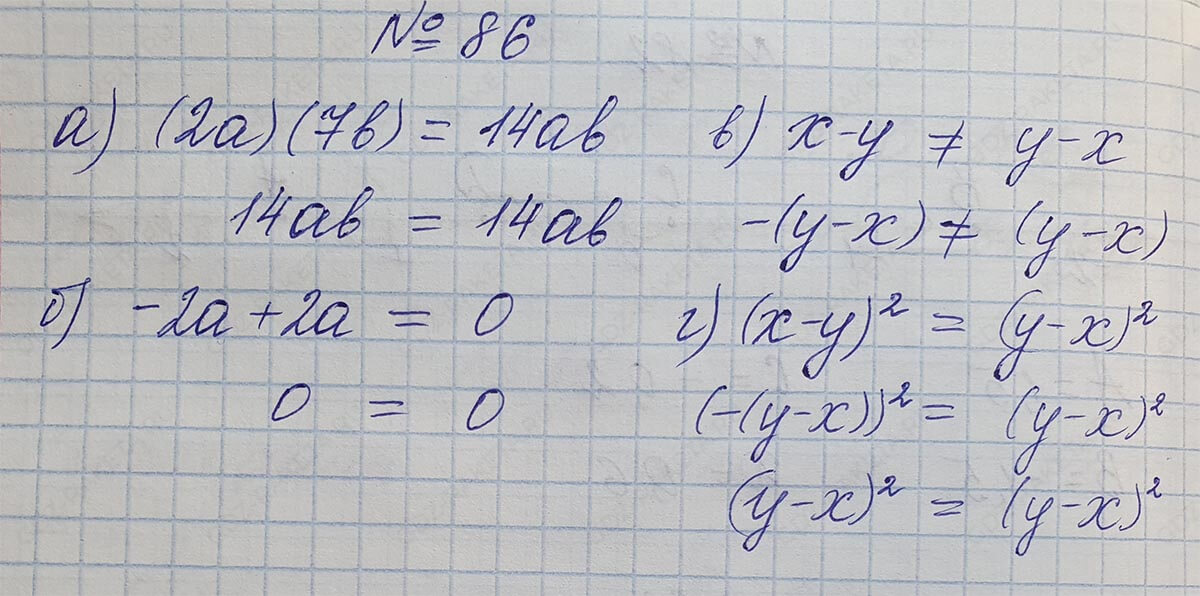 № 86
а) (2a)(7b) = 14ab
14ab = 14ab
б) -2a+2a = 0
0 = 0
в) x-y ≠ y-x
-(y-x) ≠ (y-x)
г) (x-y)² = (y-x)²
(-(y-x))² = (y-x)²
(y-x)² = (y-x)²